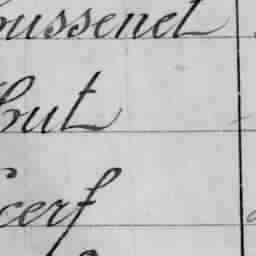 oussenet
hut
cerf